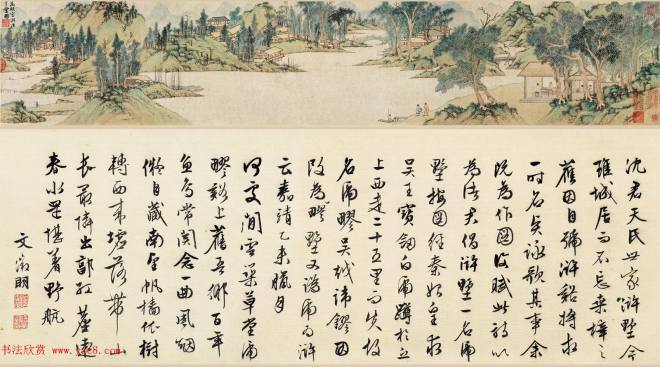 沈君天民世家滸墅今
雖城居而不忘桑梓之
舊因自號滸谿將求
一時名賢詠歌其事余
既為作圖復賦此詩以
為諸君倡滸墅一名虎
墅按圖經秦始皇求
吳王寶劍白虎蹲於丘
上西走二十五里而失故
名虎疁吳越諱鏐因
改為疁墅又訛虎為滸
云嘉靖乙未臘月
何處閒雲築草堂虎
疁谿上舊吾鄉百年
魚鳥常關念一曲風烟
擬自藏南望帆檣依樹
轉西來墟落帶山
長最憐出郭紅塵遠
春水還堪著野航
文徵明
书法欣赏